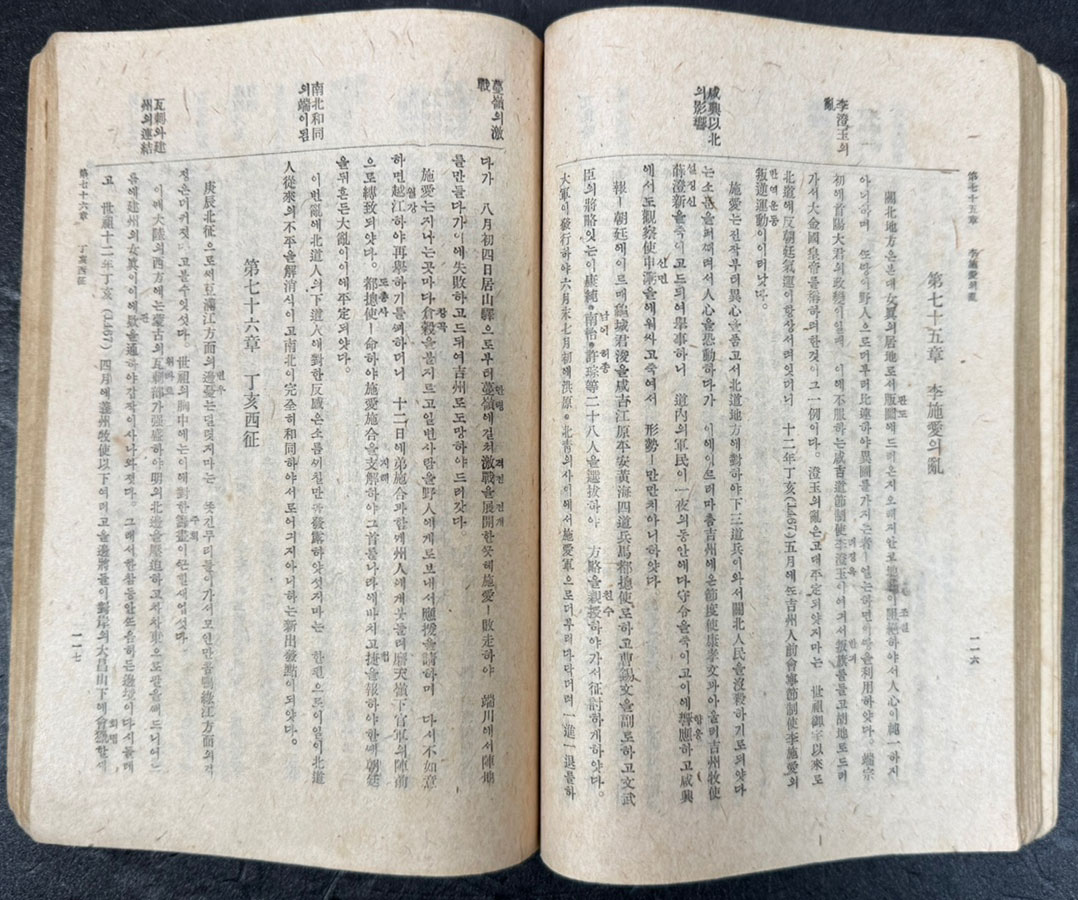 第七十五章 李施愛의亂
二一六
第七十五章 李施愛의亂
李澄玉의亂
咸興以北의影響
關北地方은본대女眞의居地로서版圖에드러온지오래지안코地勢
하야서人心이純一하지
아니하며 또땅이野人으로더부러比連하야異國
를가지는者ㅣ얼는하면이
을利用하얏다。端宗
初에首陽大君의政變이일매 이에不服하는咸吉道節制使李澄玉이여긔서叛旗를들고胡地로드러
가서大金國皇帝를稱하려한것이그一例이다。澄玉의亂은고대平定되얏거지마는 世祖御宇以來로
北道에反朝廷氣運이항상서려잇더니 十二年丁亥(1467)五月에또吉州人前會寧節制使李施愛의
叛逆運動이이러낫다。
施愛는전작부터異心을품고서北道地方에對하야下三道兵이와서關北人民을沒殺하기로되얏다
는소문을퍼때려서人心을
動하다가 이에이르러마츰吉州에온節度使康孝文과아울러吉州牧使
薛澄新을죽이고드듸여擧事하니 道內의軍民이一夜의동안에다守令을죽이고이에響應하고咸興
에서도觀察使申㴐을에워싸고죽여서 形勢ㅣ만만치아니하얏다
報ㅣ朝廷에이르매龜城君浚을咸吉江原平安黃海四道兵馬都摠使로하고曹錫文을副로하고文武
臣의將略잇는이康純。南怡。許琮等二十八人을選拔하야 方略을親授하야가서征討하게하얏다。
大軍이發行하야六月末七月初에洪原。北靑의사이에서施愛軍으로더부러마다더려一進一退를하
蔓嶺의激戰
南北和同의端이됨
瓦剌와建州의連結
다가 八月初四日居山驛으로부터蔓嶺에걸처激戰을展開한끗헤施愛ㅣ敗走하야 端川에서陣地
를만들다가이에失敗하고드듸여吉州로도망하야드러갓다
施愛는지나는곳마다倉穀을불지르고일변사람을野人에게로보내서應援을請하며 다시不如意
하면越江하야再擧하기를
하더니 十二日에弟施合과함께州人에게붓들려磨天嶺下官軍의陣前
으로縛致되얏다。都摠使ㅣ命하야施愛施合을支解하야그首를나라에바치고捷을報하야한때朝廷
을뒤흔든大亂이이에平定되얏다。
이번亂에北道人의下道人에對한反感은소름끼칠만콤發露하얏섯지마는 한편으로이일이北道
人從來의不平을解消시이고南北이完全히和同하야서도어긔지아니하는新出發點이되얏다。
第七十六章 丁亥西征
庚辰北征으로써豆滿江方面의邊憂는덜덧지마는 쫏긴무리들이가서모인만콤鴨綠江方面의걱
정은더커젓다고볼수잇섯다。世祖의胸中에는이에對한籌畫이은컬새업섯다。
이때大陸의西方에는蒙古의瓦剌部가强盛하야明의北邊을壓迫하고차차東으로팔을써드니어느
틈에建州의女眞이이에款을通하야갑작이사나와젓다。그래서한참동안뜨음하든邊境이다시들레
고 世祖十二年丁亥(1467)四月에義州牧使以下여러고을邊將들이對岸의大昌山下에會獵할새
第七十六章 丁亥西征
二一七